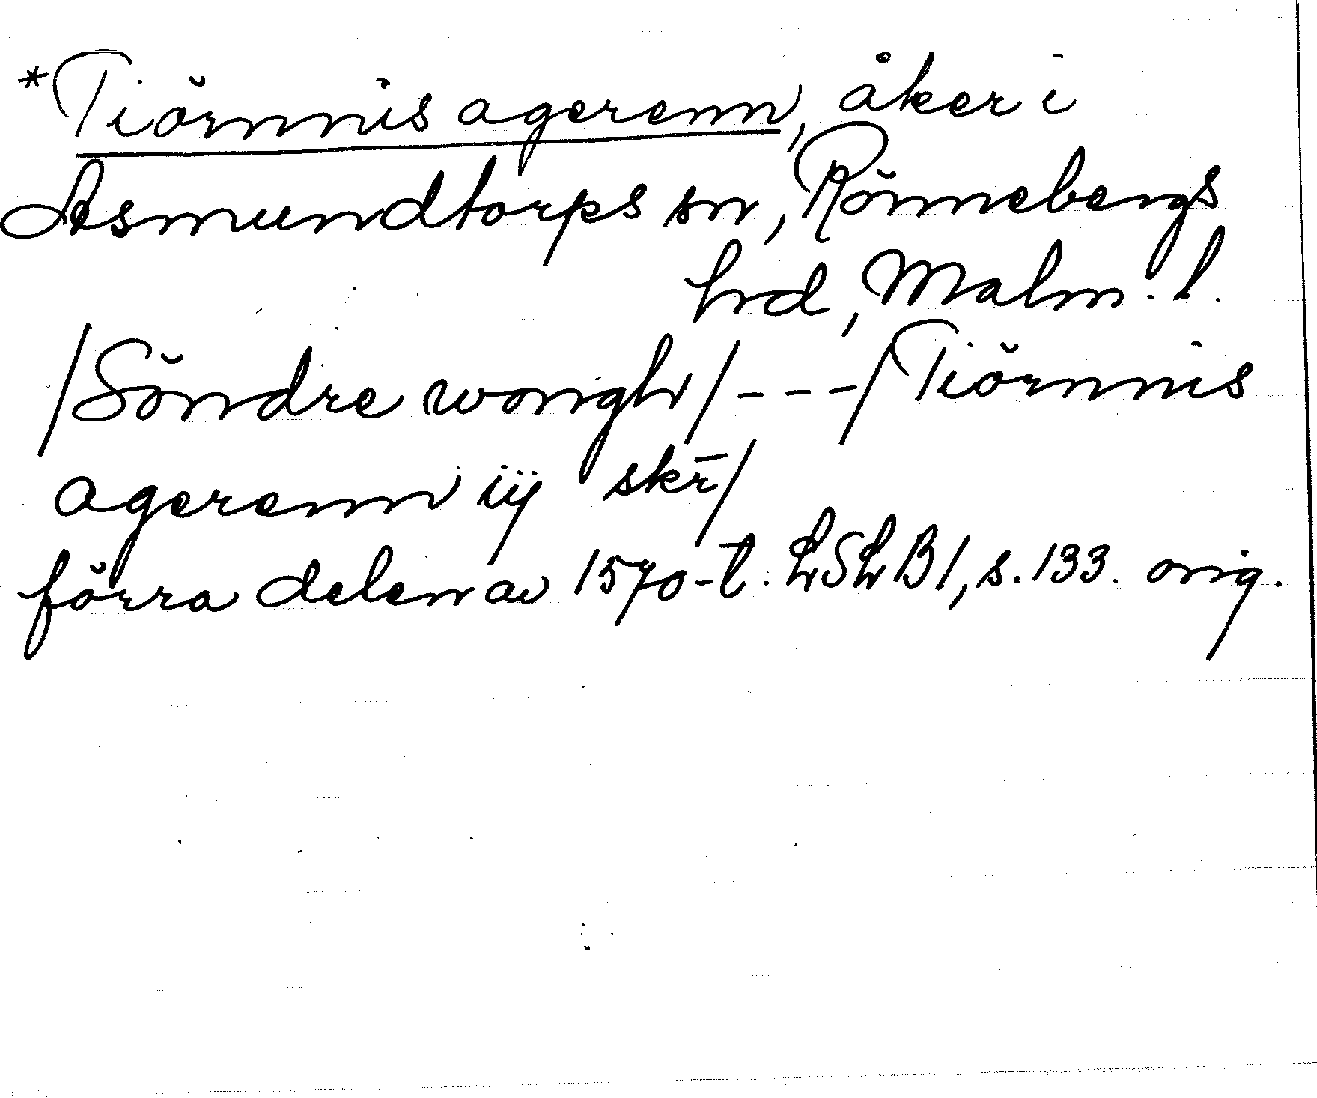 *Tiörnnis agerenn, åker i
Asmundtorps sn, Rönnebergs
hrd, Malm. l.
/Söndre wongh/ - - - /Tiörnnis
agerenn iij skr̄/
förra delen av 1570-t. LSLB1, s. 133. orig.